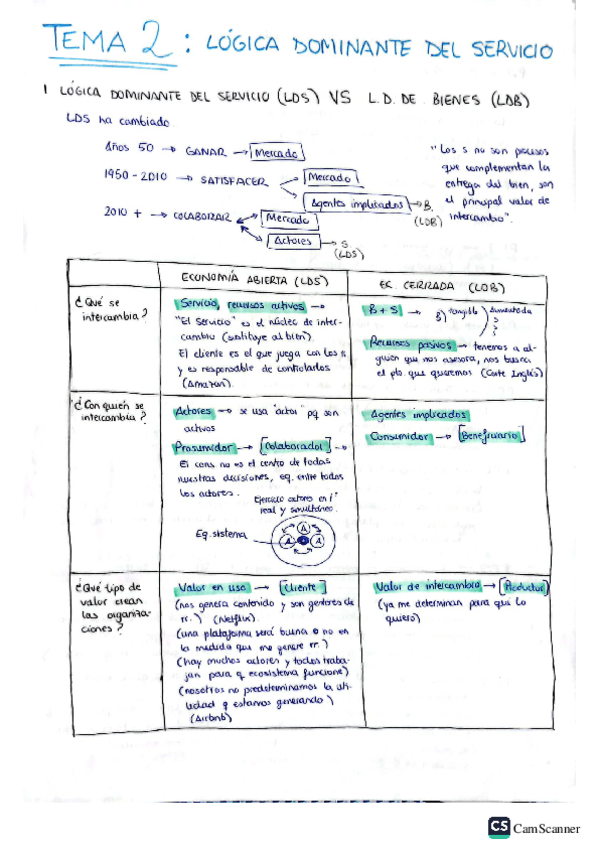 TEMA 2: LÓGICA DOMINANTE DEL SERVICIO
1 LÓGICA DOMINANTE DEL SERVICIO (LDS) VS L.D. DE BIENES (LDB)
LDS ha cambiado
Años 50 → GANAR → Mercado
1950-2010 → SATISFACER
Mercado
Agentes implicados → B. (LDB)
2010 + → COLABORAR
Mercado
Actores → S (LDS)
"Los s no son procesos
que complementan la
entrega del bien, son
el principal valor de
intercambio".
ECONOMÍA ABIERTA (LDS)
EC. CERRADA (LDB)
¿Qué se
intercambia?
Servicio, recursos activos →
"El servicio" es el núcleo de inter-
cambio (sustituye al bien)
El cliente es el que juega con los s
y es responsable de controlarlos
(Amazon).
B + S → B) tangible
Aumentada
Recursos pasivos → tenemos a al-
guien que nos asesora, nos busca
el pto. que queremos (Corte Inglés)
¿Con quién se
intercambia?
Actores → se usa "actor" pq son
activos
Prosumidor → [Colaborador] →
El cons no es el centro de todas
nuestras decisiones, eq. entre todos
los actores.
Ejercicio actores en tº
real y simultáneo.
Eq. sistema
A
A
A
Agentes implicados
Consumidor → [Beneficiario]
¿Qué tipo de
valor crean
las organiza-
ciones?
Valor en uso → [Cliente]
(nos genera contenido y son gestores de
rr.) (Netflix).
(una plataforma será buena o no en
la medida que me genere rr.)
(hay muchos actores y todos traba-
jan para q ecosistema funcione)
(nosotros no predeterminamos la uti-
lidad q estamos generando)
(Airbnb)
Valor de intercambio → [Productor]
(ya me determinan para qué lo
quiero)
CS CamScanner